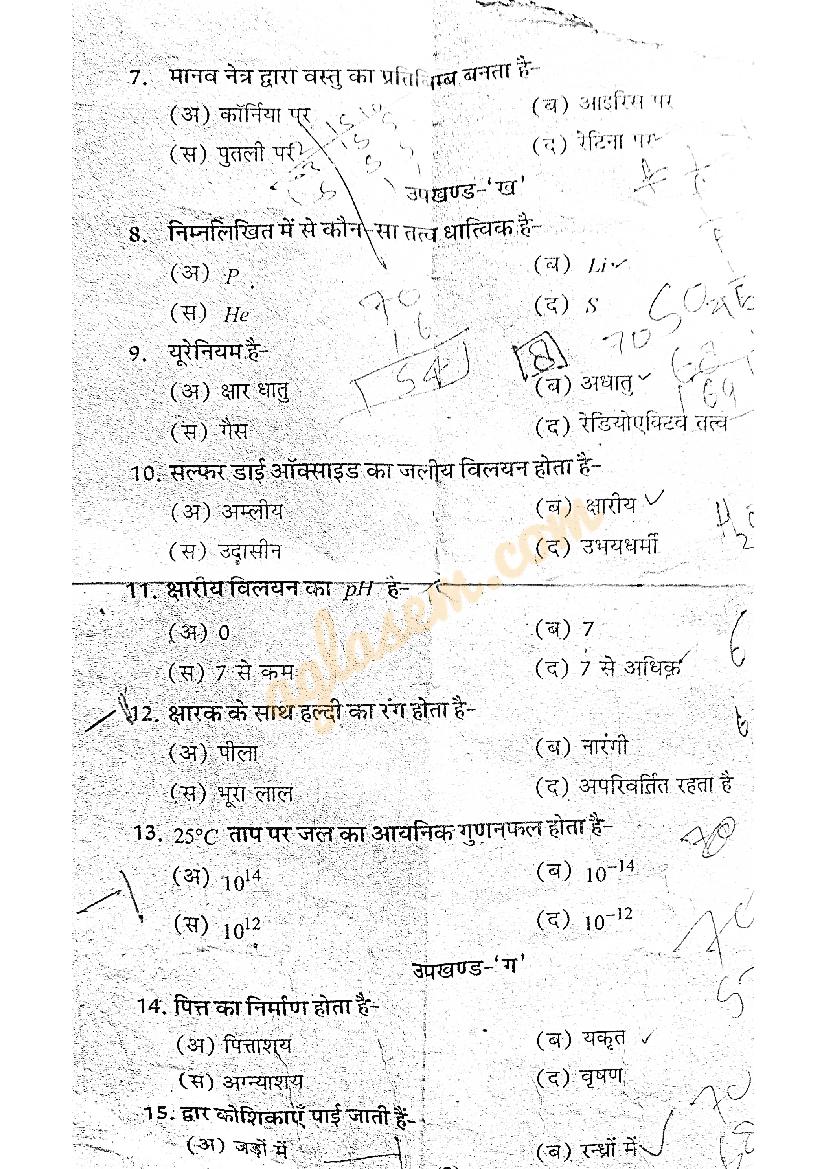 7. मानव नेत्र द्वारा वस्तु का प्रतिबिम्ब बनता है-
(अ) कॉर्निया पर (ब) आइरिस पर
(स) पुतली पर (द) रेटिना पर
उपखण्ड-‘ख’
8. निम्नलिखित में से कौन-सा तत्व धात्विक है-
(अ) P (ब) Li
(स) He (द) S
9. यूरेनियम है-
(अ) क्षार धातु (ब) अधातु
(स) गैस (द) रेडियोएक्टिव तत्व
10. सल्फर डाई ऑक्साइड का जलीय विलयन होता है-
(अ) अम्लीय (ब) क्षारीय
(स) उदासीन (द) उभयधर्मी
11. क्षारीय विलयन का pH है-
(अ) 0 (ब) 7
(स) 7 से कम (द) 7 से अधिक
12. क्षारक के साथ हल्दी का रंग होता है-
(अ) पीला (ब) नारंगी
(स) भूरा लाल (द) अपरिवर्तित रहता है
13. 25°C ताप पर जल का आयनिक गुणनफल होता है-
(अ) 10^14 (ब) 10^-14
(स) 10^12 (द) 10^-12
उपखण्ड-‘ग’
14. पित्त का निर्माण होता है-
(अ) पित्ताशय (ब) यकृत
(स) अग्न्याशय (द) वृषण
15. द्वार कोशिकाएँ पाई जाती हैं-
(अ) जड़ों में (ब) रन्ध्रों में
aglasem.com
70
16
54
8
70
70
70
70